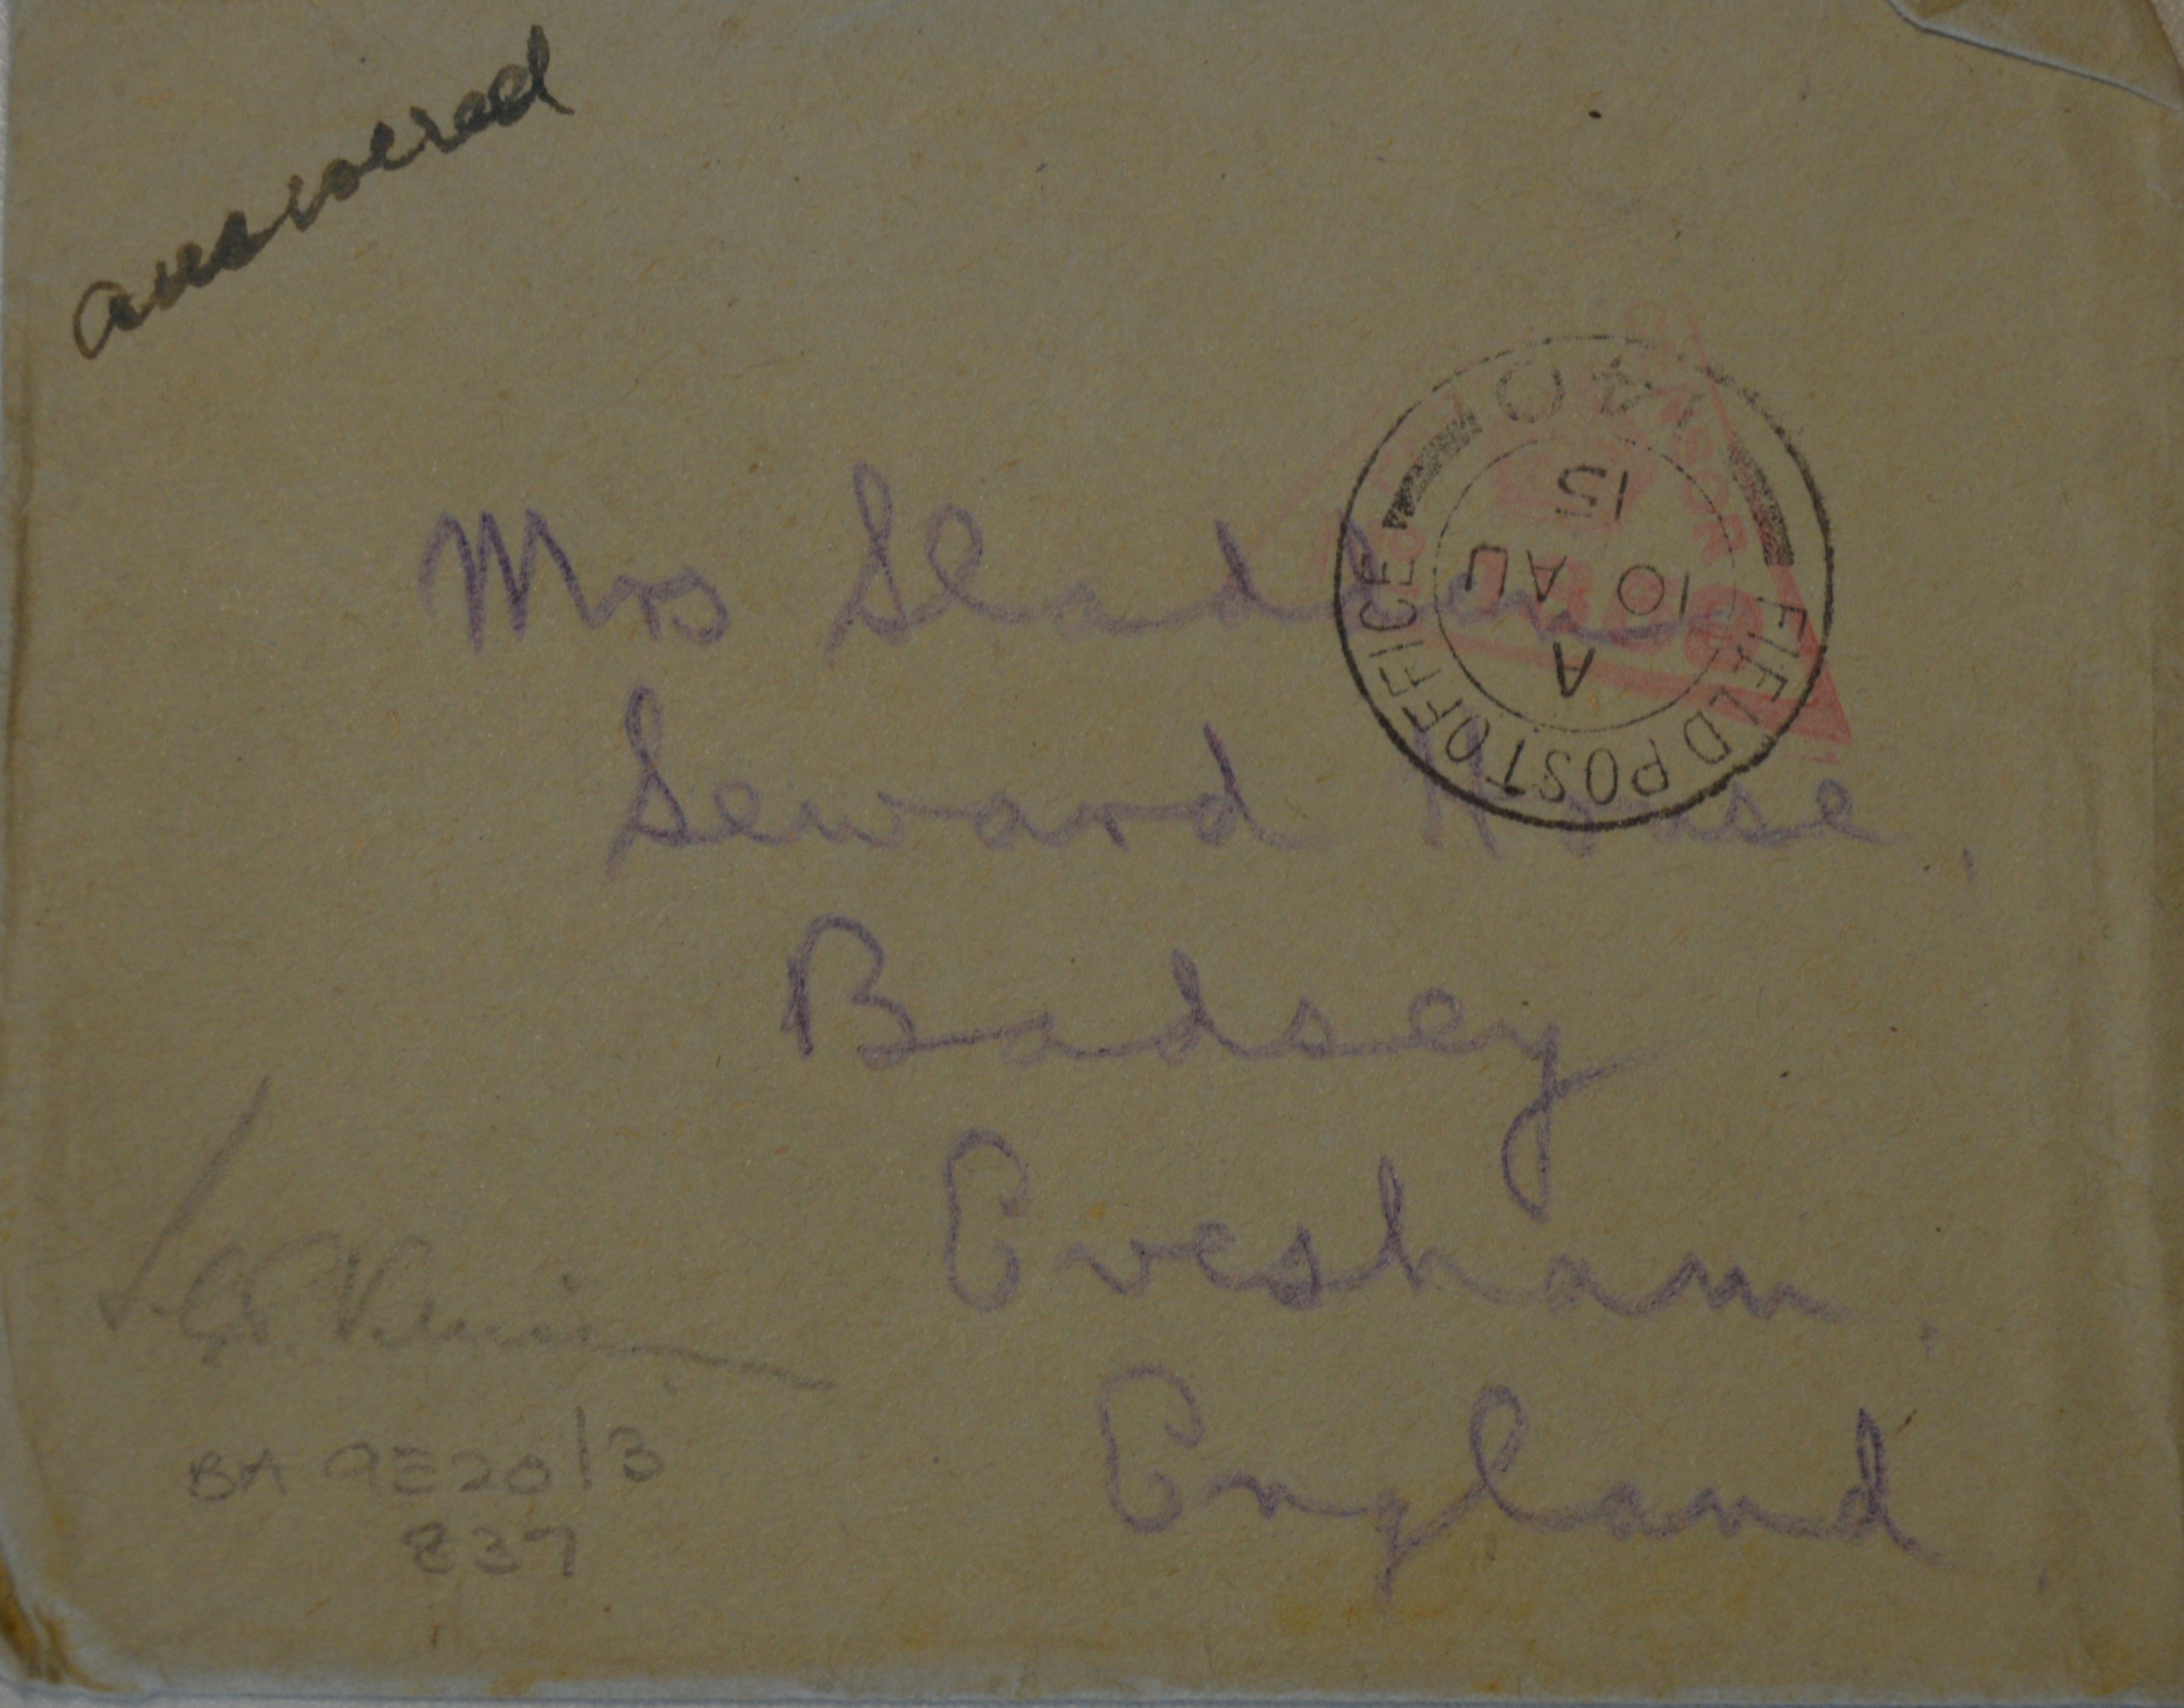 answered
Mrs Sladden
Seward House,
Badsey
Evesham,
England
FIELD POST OFFICE
140
A
10 AU
15
BA 9520/3
237